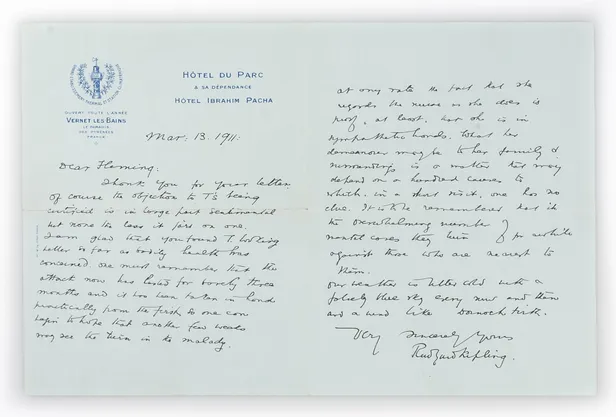 HÔTEL DU PARC
& SA DÉPENDANCE
HÔTEL IBRAHIM PACHA
OUVERT TOUTE L'ANNÉE
VERNET LES BAINS
LE PARADIS
DES PYRÉNÉES
FRANCE
Mar. 13. 1911.
Dear Fleming:
Thank you for your letter
of course the objection to T's being
certified is in large part sentimental
but none the less it jars on one.
I am glad that you found T. looking
better so far as bodily health was
concerned. One must remember that the
attack now has lasted for barely three
months and it has been taken in hand
practically from the first. So one can
begin to hope that another few weeks
may see the turn in the malady.
at any rate the fact that she
regards the nurse as she does is
proof, at least, that she is in
sympathetic hands. What her
demeanour may be to her family &
surroundings is a matter that may
depend on a hundred causes to
which, in a short visit, one has no
clue. It is to be remembered that in
the overwhelming number of
mental cases they turn for awhile
against those who are nearest to
them.
Our weather is bitter cold with a
every now and then
and a wind like Dornoch Firth.
Very sincerely yours
Rudyard Kipling.